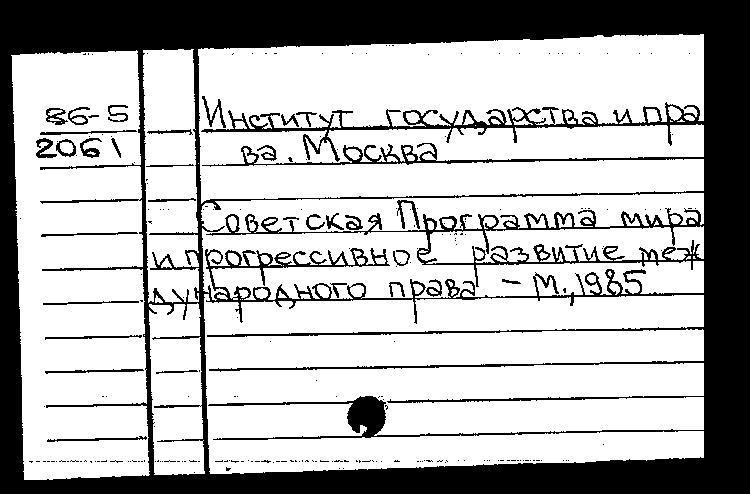 86-5
2061
Институт государства и пра
ва. Москва
Советская Программа мира
и прогрессивное развитие меж
дународного права - М., 1985